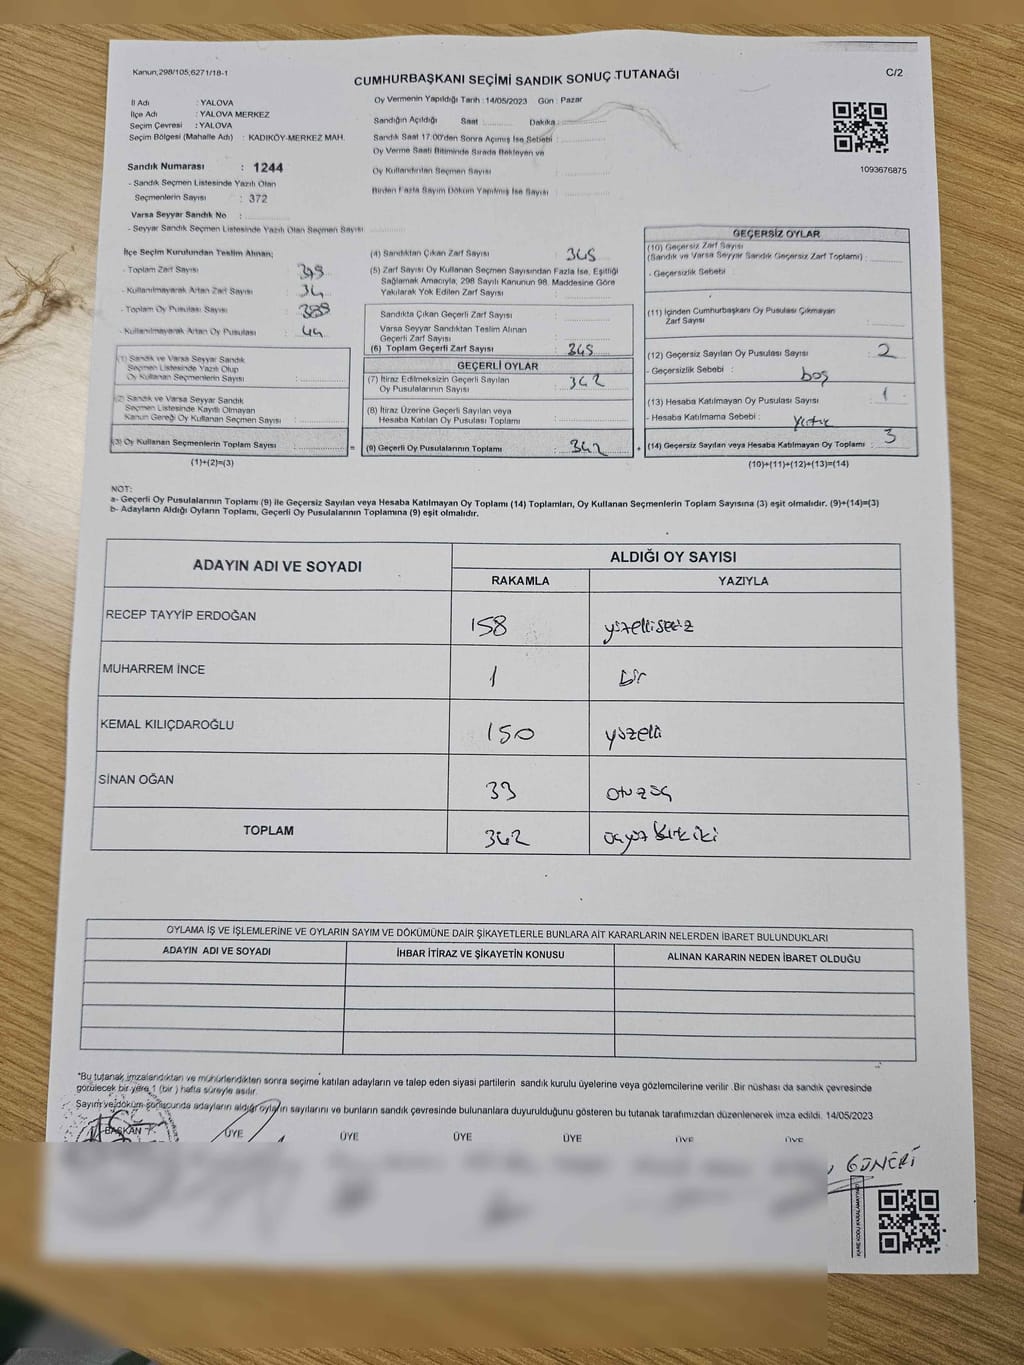 Kanun,298/105,6271/18-1
CUMHURBAŞKANI SEÇİMİ SANDIK SONUÇ TUTANAĞI
C/2
İl Adı : YALOVA
İlçe Adı : YALOVA MERKEZ
Seçim Çevresi : YALOVA
Seçim Bölgesi (Mahalle Adı) : KADIKÖY-MERKEZ MAH.
Sandık Numarası : 1244
- Sandık Seçmen Listesinde Yazılı Olan
Seçmenlerin Sayısı : 372
Varsa Seyyar Sandık No :
- Seyyar Sandık Seçmen Listesinde Yazılı Olan Seçmen Sayısı
Oy Vermenin Yapıldığı Tarih :14/05/2023 Gün : Pazar
Sandığın Açıldığı Saat : Dakika :
Sandık Saat 17:00'den Sonra Açılmış İse Sebebi :
Oy Verme Saati Bitiminde Sırada Bekleyen ve
Oy Kullandırılan Seçmen Sayısı
Birden Fazla Sayım Döküm Yapılmış İse Sayısı
1093676875
İlçe Seçim Kurulundan Teslim Alınan;
- Toplam Zarf Sayısı :
- Kullanılmayarak Artan Zarf Sayısı : 34
- Toplam Oy Pusulası Sayısı :
- Kullanılmayarak Artan Oy Pusulası : 44
(1) Sandık ve Varsa Seyyar Sandık
Seçmen Listesinde Yazılı Olup
Oy Kullanan Seçmenlerin Sayısı :
(2) Sandık ve Varsa Seyyar Sandık
Seçmen Listesinde Kayıtlı Olmayan
Kanun Gereği Oy Kullanan Seçmen Sayısı :
(3) Oy Kullanan Seçmenlerin Toplam Sayısı :
(1)+(2)=(3)
(4) Sandıktan Çıkan Zarf Sayısı : 345
(5) Zarf Sayısı Oy Kullanan Seçmen Sayısından Fazla İse, Eşitliği
Sağlamak Amacıyla; 298 Sayılı Kanunun 98. Maddesine Göre
Yakılarak Yok Edilen Zarf Sayısı :
Sandıkta Çıkan Geçerli Zarf Sayısı :
Varsa Seyyar Sandıktan Teslim Alınan
Geçerli Zarf Sayısı :
(6) Toplam Geçerli Zarf Sayısı : 345
GEÇERLİ OYLAR
(7) İtiraz Edilmeksizin Geçerli Sayılan
Oy Pusulalarının Sayısı : 342
(8) İtiraz Üzerine Geçerli Sayılan veya
Hesaba Katılan Oy Pusulası Toplamı :
= (9) Geçerli Oy Pusulalarının Toplamı : 342 +
GEÇERSİZ OYLAR
(10) Geçersiz Zarf Sayısı
(Sandık ve Varsa Seyyar Sandık Geçersiz Zarf Toplamı) :
- Geçersizlik Sebebi :
(11) İçinden Cumhurbaşkanı Oy Pusulası Çıkmayan
Zarf Sayısı :
(12) Geçersiz Sayılan Oy Pusulası Sayısı : 2
- Geçersizlik Sebebi : boş
(13) Hesaba Katılmayan Oy Pusulası Sayısı : 1
- Hesaba Katılmama Sebebi : yırtık
(14) Geçersiz Sayılan veya Hesaba Katılmayan Oy Toplamı : 3
(10)+(11)+(12)+(13)=(14)
NOT:
a- Geçerli Oy Pusulalarının Toplamı (9) ile Geçersiz Sayılan veya Hesaba Katılmayan Oy Toplamı (14) Toplamları, Oy Kullanan Seçmenlerin Toplam Sayısına (3) eşit olmalıdır. (9)+(14)=(3)
b- Adayların Aldığı Oyların Toplamı, Geçerli Oy Pusulalarının Toplamına (9) eşit olmalıdır.
ADAYIN ADI VE SOYADI
ALDIĞI OY SAYISI
RAKAMLA YAZIYLA
RECEP TAYYİP ERDOĞAN 158 yüzellisekiz
MUHARREM İNCE 1 bir
KEMAL KILIÇDAROĞLU 150 yüzelli
SİNAN OĞAN 33 otuzüç
TOPLAM 342 üçyüz kırkiki
OYLAMA İŞ VE İŞLEMLERİNE VE OYLARIN SAYIM VE DÖKÜMÜNE DAİR ŞİKAYETLERLE BUNLARA AİT KARARLARIN NELERDEN İBARET BULUNDUKLARI
ADAYIN ADI VE SOYADI İHBAR İTİRAZ VE ŞİKAYETİN KONUSU ALINAN KARARIN NEDEN İBARET OLDUĞU
*Bu tutanak imzalandıktan ve mühürlendikten sonra seçime katılan adayların ve talep eden siyasi partilerin sandık kurulu üyelerine veya gözlemcilerine verilir .Bir nüshası da sandık çevresinde
görülecek bir yere 1 (bir ) hafta süreyle asılır.
Sayım ve döküm sonucunda adayların aldığı oyların sayılarını ve bunların sandık çevresinde bulunanlara duyurulduğunu gösteren bu tutanak tarafımızdan düzenlenerek imza edildi. 14/05/2023
BAŞKAN ÜYE ÜYE ÜYE ÜYE ÜYE ÜYE
GÜNERİ
KARE KODU KARALAMAYINIZ